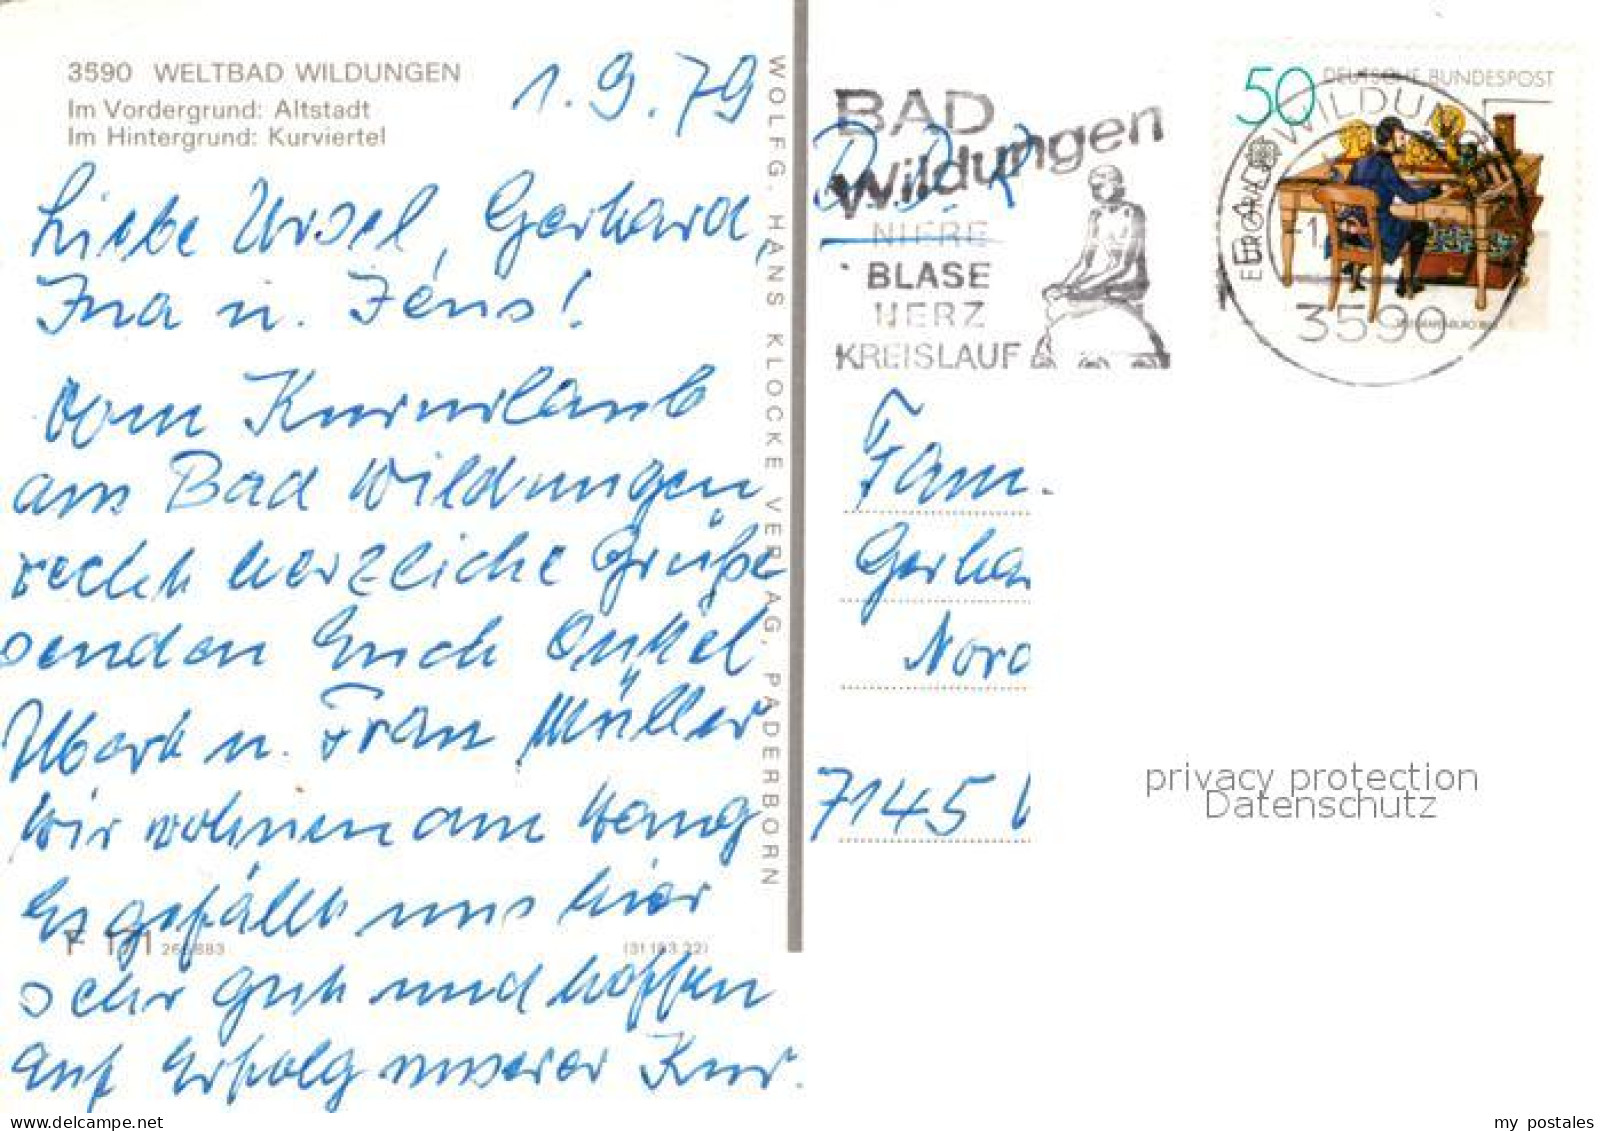 3590 WELTBAD WILDUNGEN
Im Vordergrund: Altstadt
Im Hintergrund: Kurviertel
1.9.79
Liebe Ursel, Gerhard,
Ina u. Jens!
Vom Kururlaub
aus Bad Wildungen
recht herzliche Grüße
senden Euch Onkel
u. Frau Müller
Wir wohnen am Hang
Es gefällt uns hier
sehr gut und hoffen
auf Erfolg unserer Kur.
F 171
(31 183 22)
WOLFG. HANS KLOCKE VERLAG, PADERBORN
BAD
Wildungen
NIERE
BLASE
HERZ
KREISLAUF
50 DEUTSCHE BUNDESPOST
WILDUN
3590
Fam.
Gerha
Nord
7145
privacy protection
Datenschutz
my postales